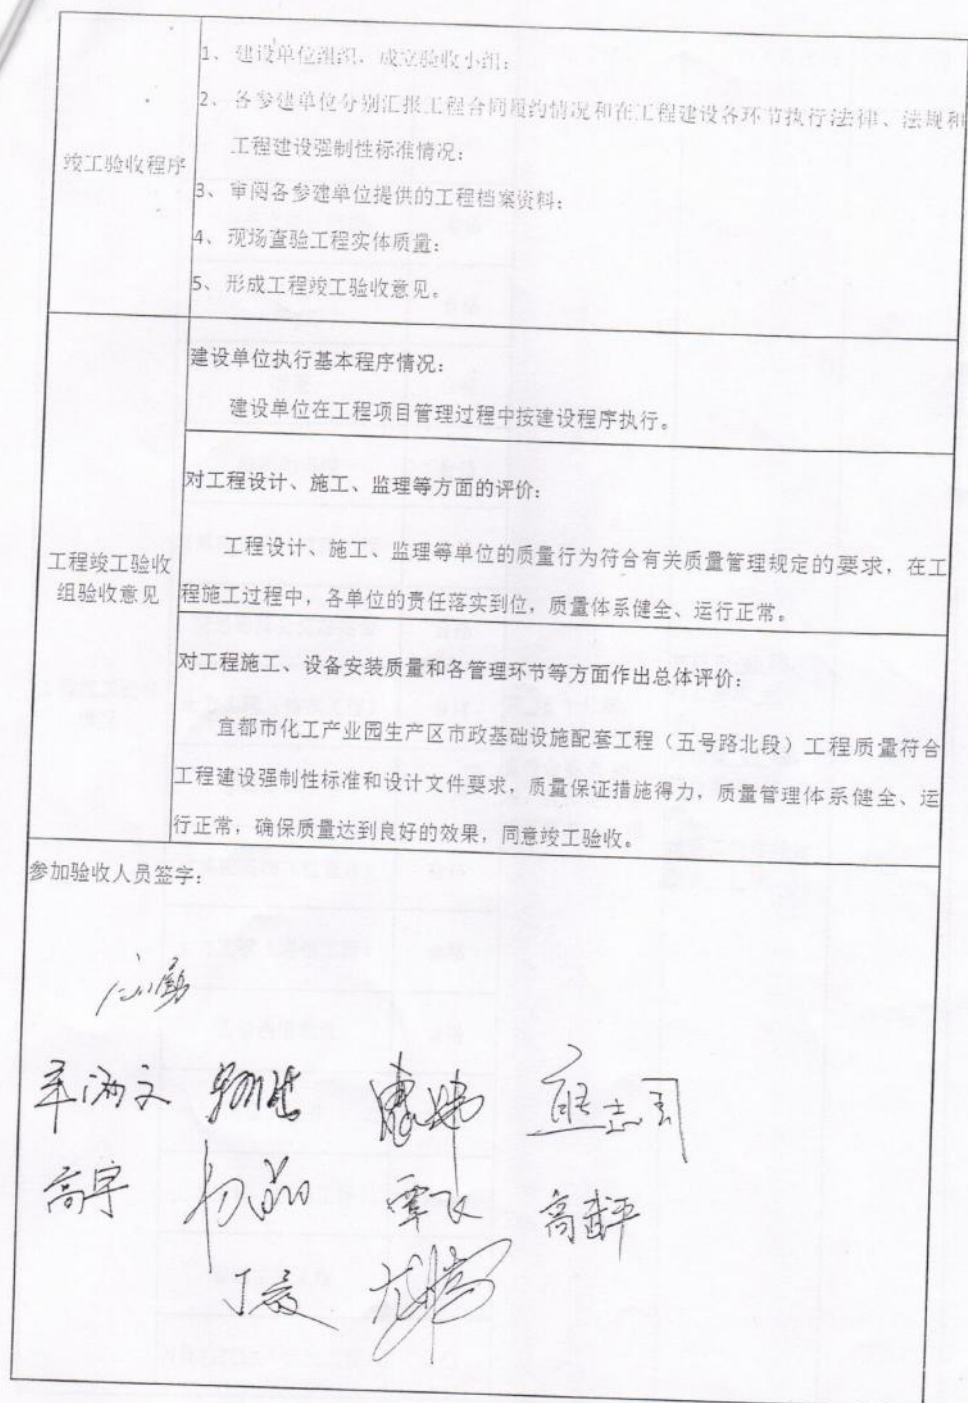 竣工验收程序
1、建设单位组织，成立验收小组；
2、各参建单位分别汇报工程合同履约情况和在工程建设各环节执行法律、法规和
工程建设强制性标准情况；
3、审阅各参建单位提供的工程档案资料；
4、现场查验工程实体质量；
5、形成工程竣工验收意见。
工程竣工验收
组验收意见
建设单位执行基本程序情况：
建设单位在工程项目管理过程中按建设程序执行。
对工程设计、施工、监理等方面的评价：
工程设计、施工、监理等单位的质量行为符合有关质量管理规定的要求，在工
程施工过程中，各单位的责任落实到位，质量体系健全、运行正常。
对工程施工、设备安装质量和各管理环节等方面作出总体评价：
宜都市化工产业园生产区市政基础设施配套工程（五号路北段）工程质量符合
工程建设强制性标准和设计文件要求，质量保证措施得力，质量管理体系健全、运
行正常，确保质量达到良好的效果，同意竣工验收。
参加验收人员签字：
高宇 覃飞